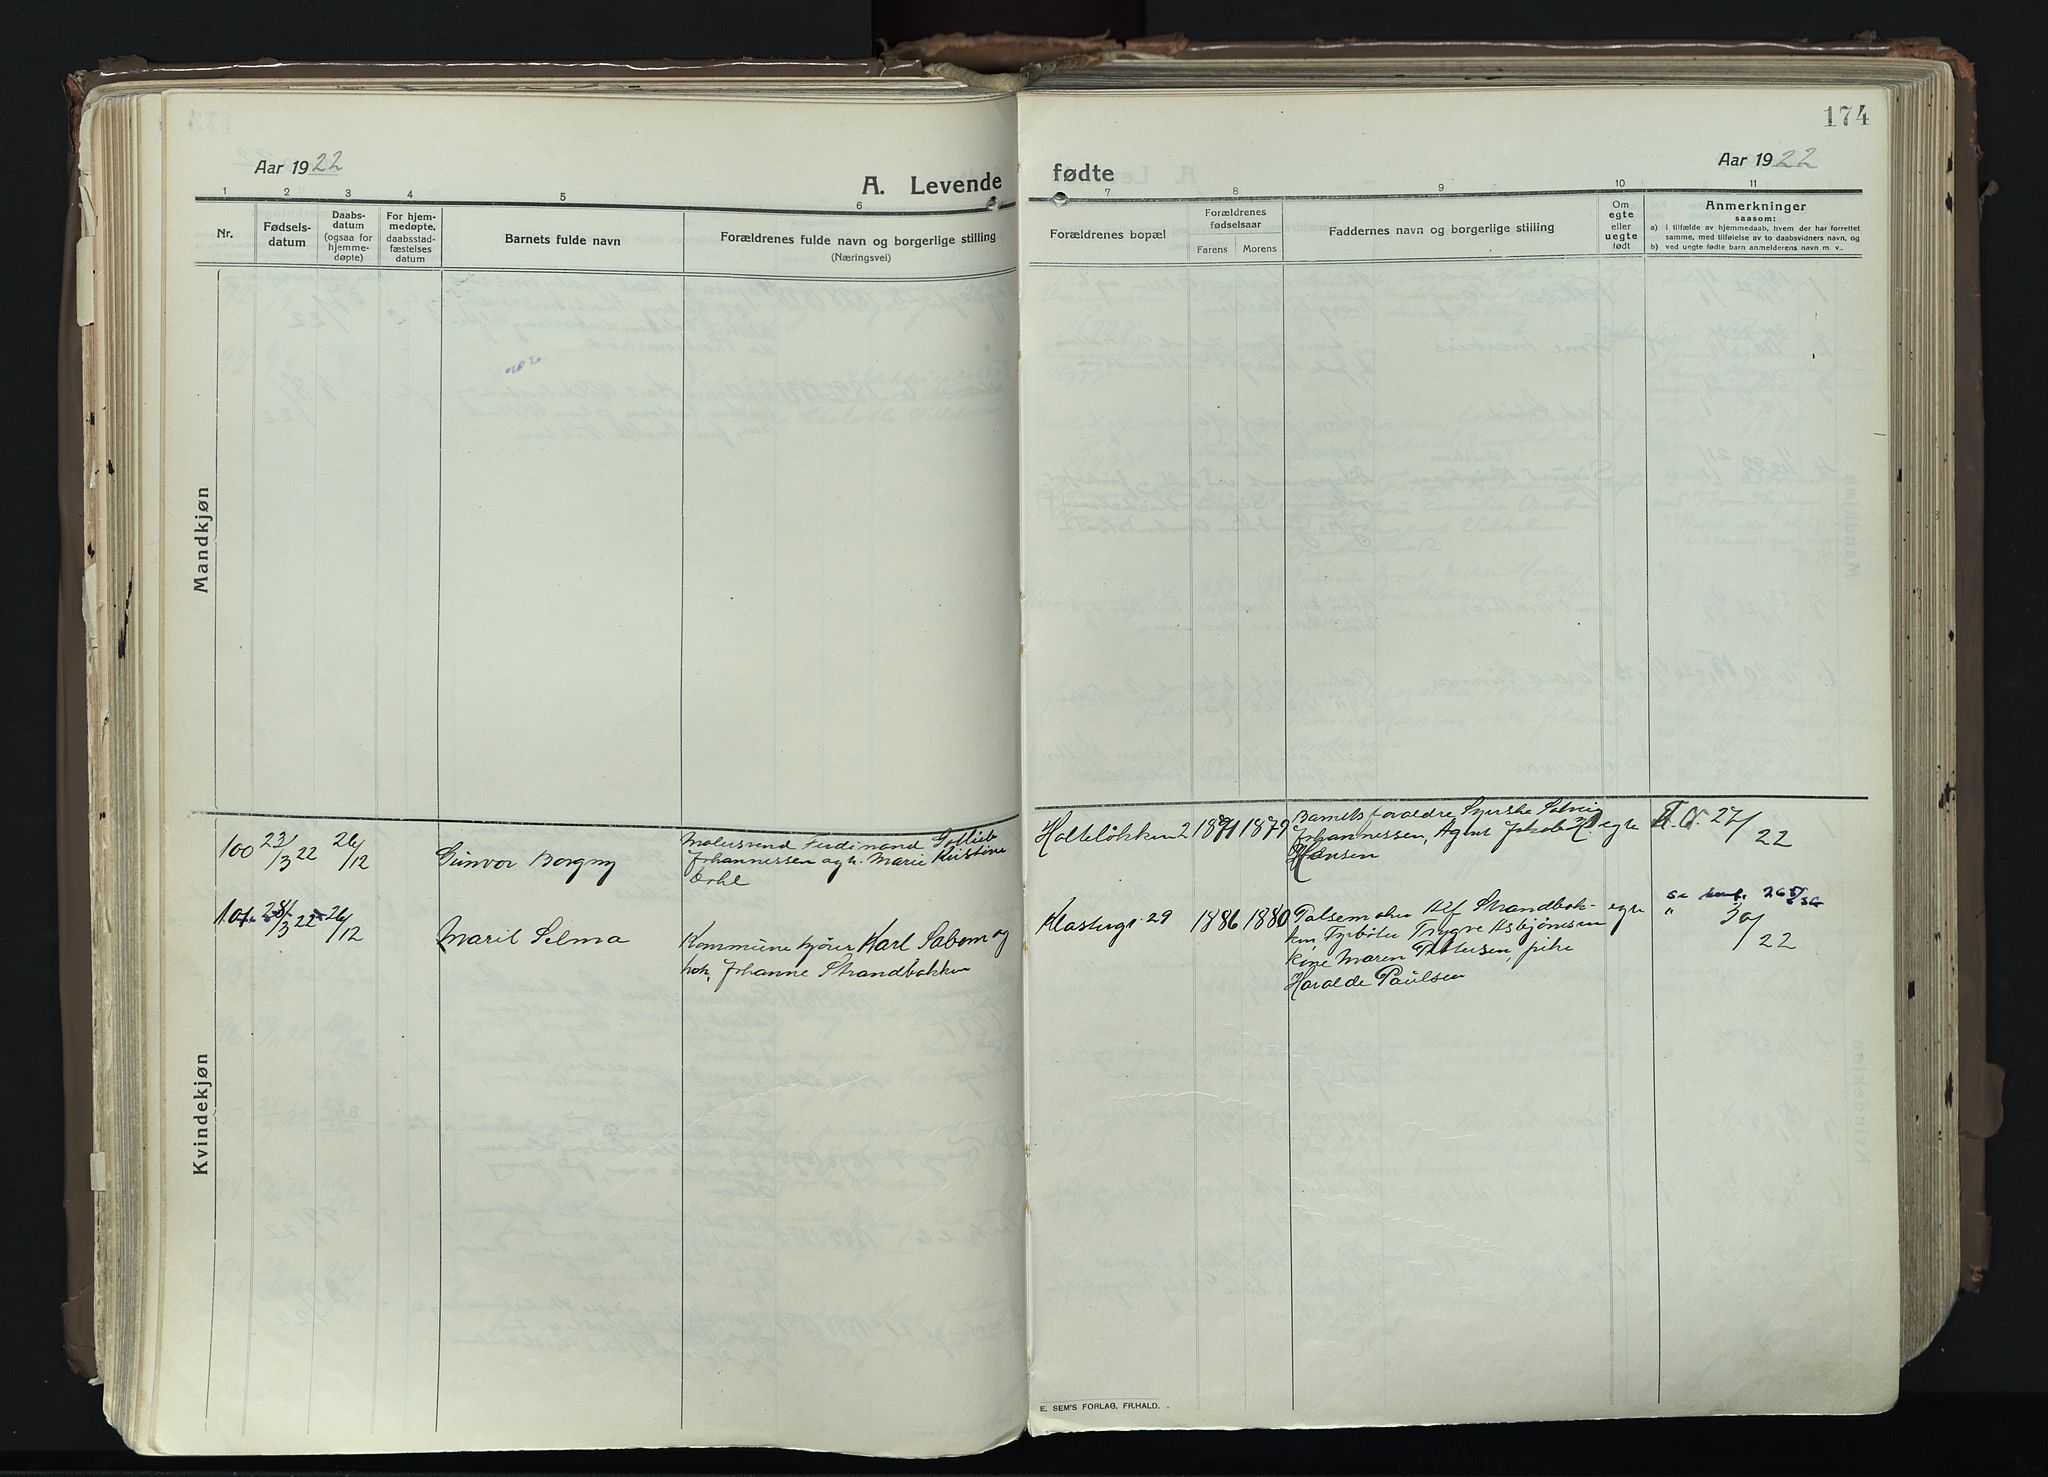 174
Aar 1922
A. Levende
fødte
Aar 1922
1 2 3 4 5 6 7 8 9 10 11
Nr.
Fødsels-
datum
Daabs-
datum
(ogsaa for
hjemme-
døpte)
For hjem-
medøpte,
daabsstad-
fæstelses
datum
Barnets fulde navn
Forældrenes fulde navn og borgerlige stilling
(Næringsvei)
Forældrenes bopæl
Forældrenes
fødselsaar
Farens Morens
Faddernes navn og borgerlige stilling
Om
egte
eller
uegte
født
Anmerkninger
saasom:
a) i tilfælde av hjemmedaab, hvem der har forrettet
samme, med tilføielse av to daabsvidners navn, og
b) ved uegte fødte barn anmelderens navn m. v..
Mandkjøn
Kvindekjøn
100 23/3 22 26/12 Gunvor Borgny
Malersvend Ferdinand Gotlieb
Johannessen og h. Marie Kristine
Holteløkken 2 1871 1879
Barnets foraldre, Syerske Solveig
Johannessen, Agent Jakob egte
Hansen
27/22
101 28/3 22 26/12 Marit Selma
Kommunekjører Karl Salvem og
h. Johanne Strandbakken
Klosterg. 29 1886 1880
Pølsemaker Alf Strandbak- egte
ken Fyrbøter Trygve Asbjørnsen
Maren Pettersen, pike
Haralde Paulsen
" 30/22
E. SEM'S FORLAG, FR.HALD.